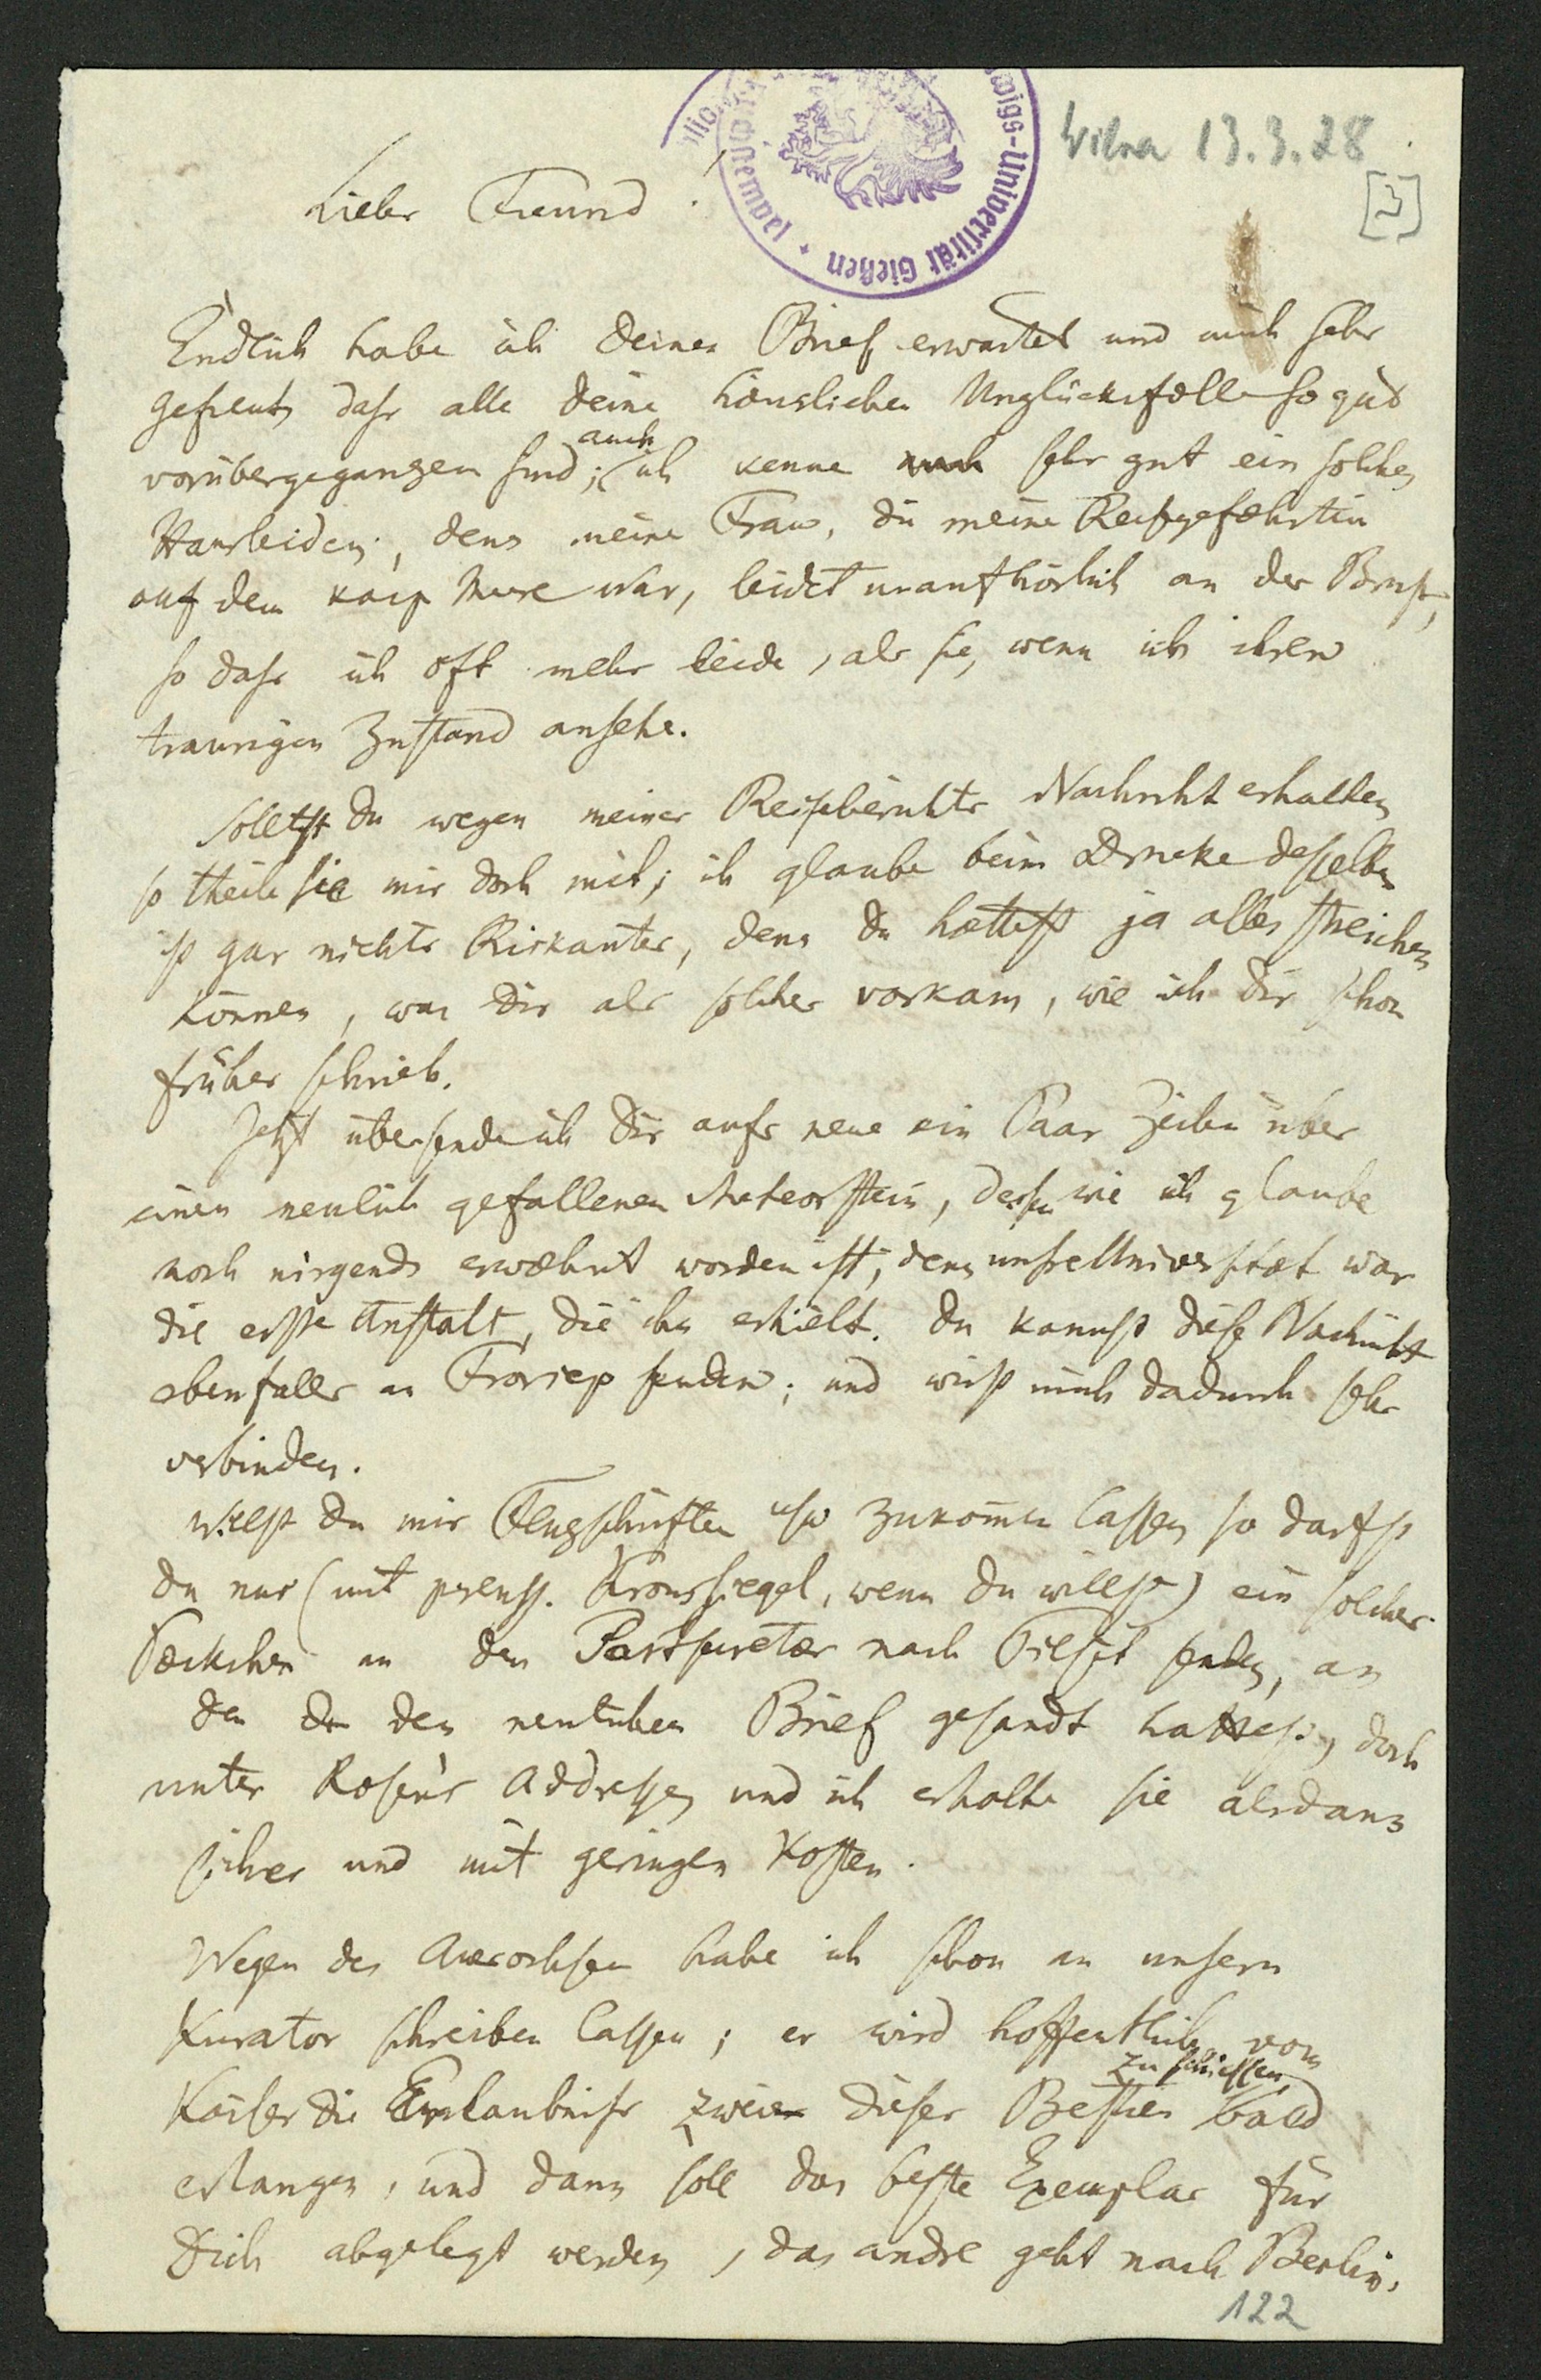 Wilna 13.3.28
[3]
wigs-Universität Gießen
Lieber Freund!
Endlich habe ich Deinen Brief erwartet und mich sehr
gefreut, dass alle Deine häuslichen Unglücksfælle so gut
vorübergegangen sind; auch ich kenne sehr gut ein solches
Hausleiden, denn meine Frau, die meine Reisegefæhrtin
auf dem kasp Meere war, leidet unaufhörlich an der Brust,
so dass ich oft mehr leide, als sie, wenn ich ihren
traurigen Zustand ansehe.
Solltest Du wegen meines Reiseberichts Nachricht erhalten
so theile sie mir doch mit; ich glaube beim Drucke desselben
ist gar nichts Riskantes, denn Du hættest ja alles streichen
können, was Dir als solches vorkam, wie ich Dir schon
früher schrieb.
Jetzt übersende ich Dir aufs neue ein Paar Zeilen über
einen neulich gefallenen Meteorstein, dessen wie ich glaube
noch nirgends erwæhnt worden ist, denn unsre Universitæt war
die erste Anstalt, die ihn erhielt. Du kannst diese Nachricht
ebenfalls an Froriep senden; und wirst mich dadurch sehr
verbinden.
Willst Du mir Flugschriften usw zukommen lassen so darfst
Du nur (mit preuss. Kronssiegel, wenn Du willst) ein solches
Pæckchen an den Postsecretær nach Tilsit senden, an
den Du den neulichen Brief gesandt hattest, doch
unter Rosen's Addressen und ich erhalte sie alsdann
sicher und mit geringen Kosten.
Wegen des Auerochsen habe ich schon an unsern
Kurator schreiben lassen; er wird hoffentlich vom
Kaiser die Erlaubniss zwei dieser Bestien zu schiessen bald
erlangen, und dann soll das beste Exemplar für
Dich abgelegt werden, das andre geht nach Berlin.
122